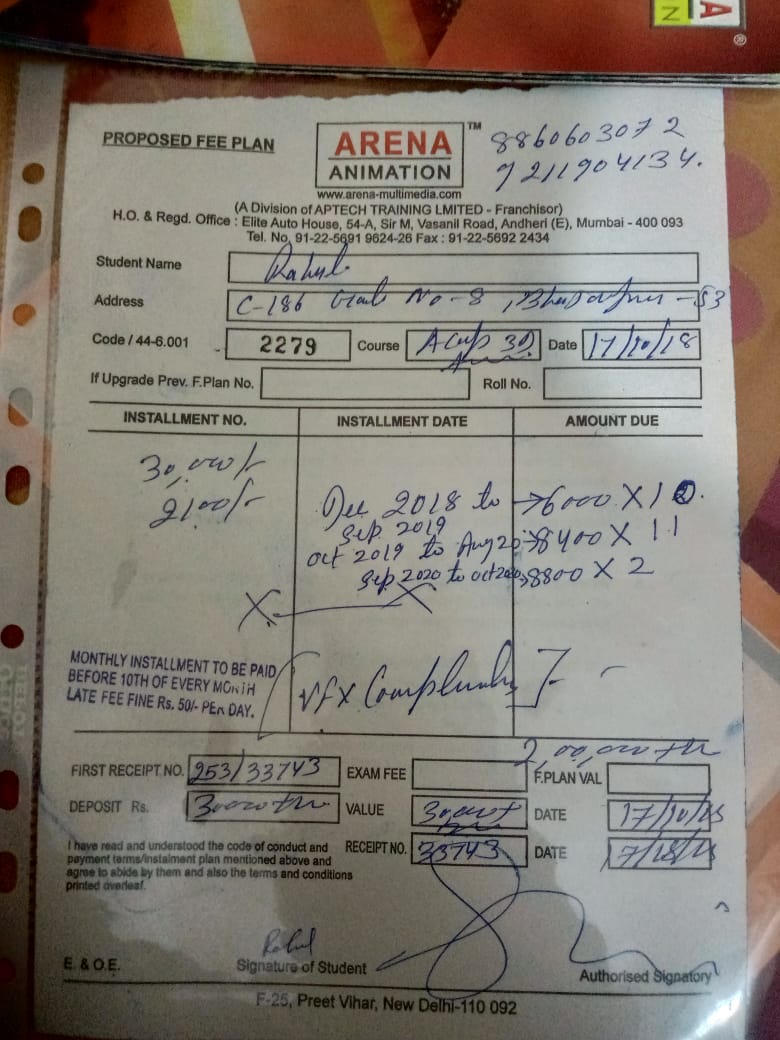 A
N
®
PROPOSED FEE PLAN
ARENA
ANIMATION
TM
8860603072
9211904134.
www.arena-multimedia.com
(A Division of APTECH TRAINING LIMITED - Franchisor)
H.O. & Regd. Office : Elite Auto House, 54-A, Sir M, Vasanil Road, Andheri (E), Mumbai - 400 093
Tel. No, 91-22-5691 9624-26 Fax : 91-22-5692 2434
Student Name Rahul
Address C-186 No-8 - 53
Code / 44-6.001 2279 Course 3D Date 17/10/18
If Upgrade Prev. F.Plan No. Roll No.
INSTALLMENT NO. INSTALLMENT DATE AMOUNT DUE
30,000/-
2100/- Dec 2018 to → 6000 X 10.
Sep. 2019
Oct 2019 to Aug 20 → 8400 X 11
Sep 2020 to oct 2020 → 8800 X 2
X X
MONTHLY INSTALLMENT TO BE PAID
BEFORE 10TH OF EVERY MONTH
LATE FEE FINE Rs. 50/- PER DAY.
VFX
2,00,000
FIRST RECEIPT NO. 253/33743 EXAM FEE F.PLAN VAL
DEPOSIT Rs. 30000 VALUE 30,000 DATE 17/10/18
I have read and understood the code of conduct and
payment terms/instalment plan mentioned above and
agree to abide by them and also the terms and conditions
printed overleaf.
RECEIPT NO. 33743 DATE
Rahul
E. & O.E. Signature of Student Authorised Signatory
F-25, Preet Vihar, New Delhi-110 092